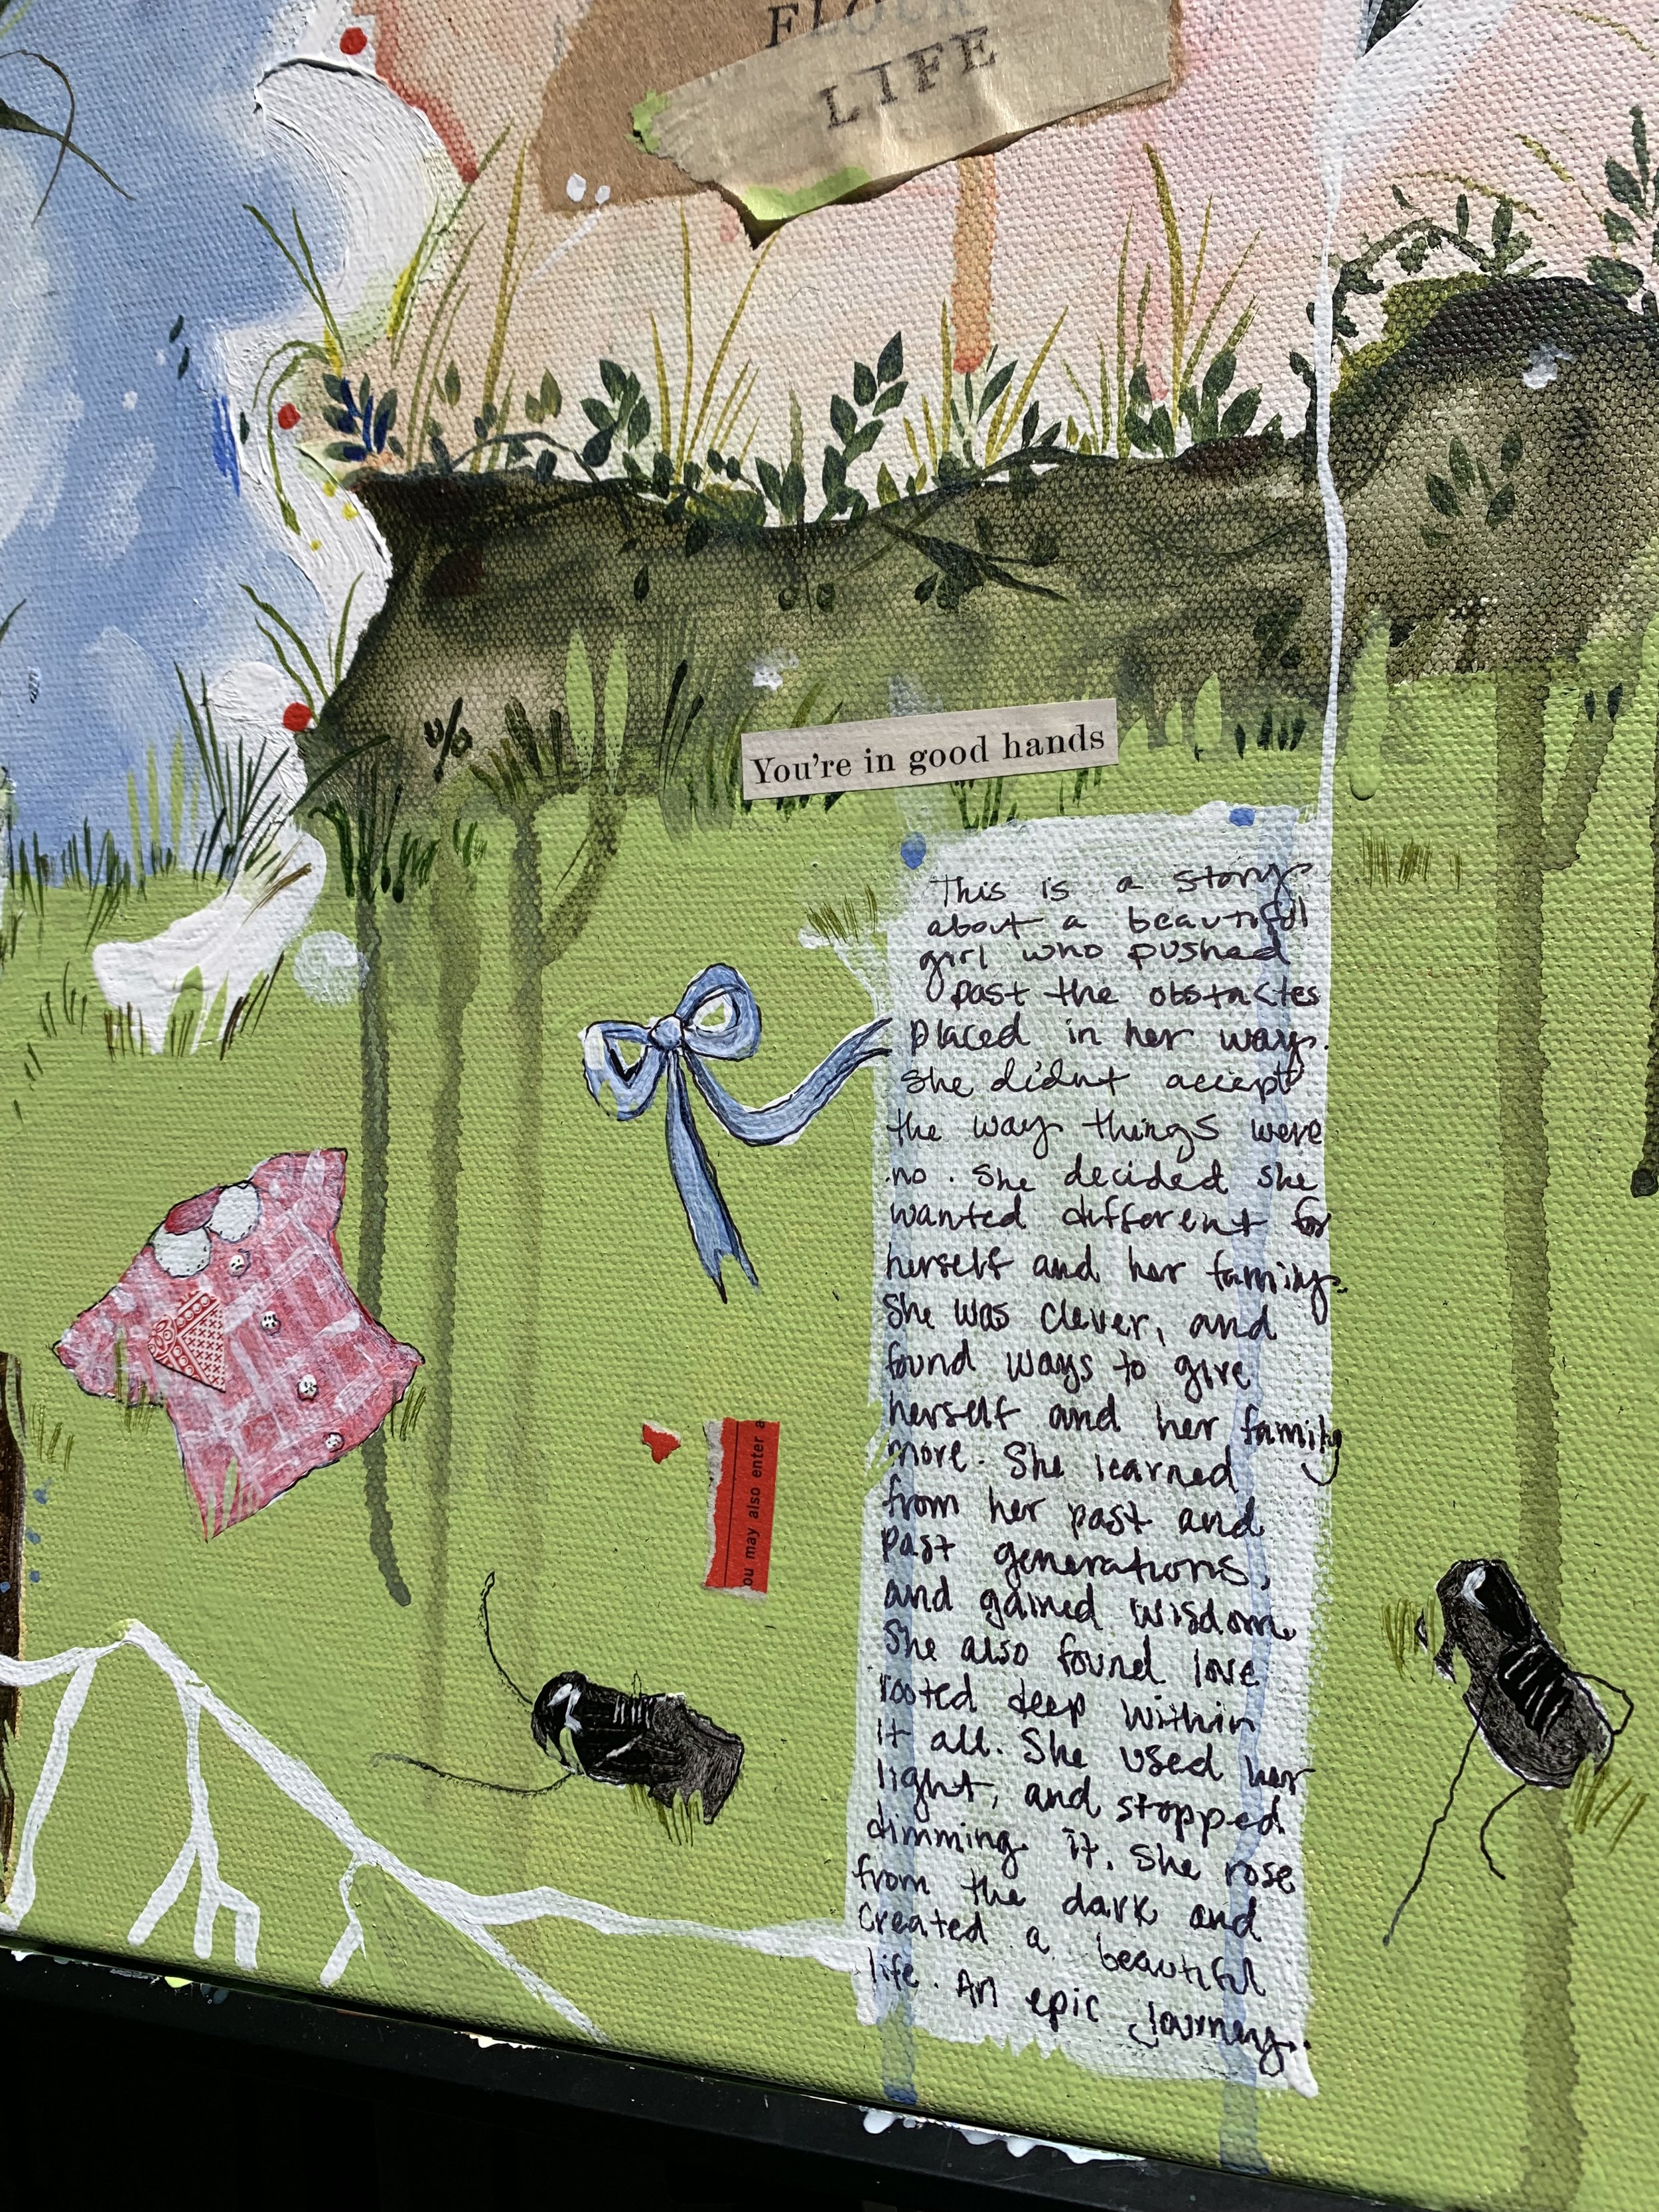 FLOCK
LIFE
You're in good hands
This is a story
about a beautiful
girl who pushed
past the obstacles
placed in her way.
She didnt accept
the way things were
no. She decided she
wanted different for
herself and her family.
She was clever, and
found ways to give
herself and her family
more. She learned
from her past and
past generations,
and gained wisdom.
She also found love
rooted deep within
it all. She used her
light, and stopped
dimming it. She rose
from the dark and
created a beautiful
life. An epic journey..
ou may also enter a